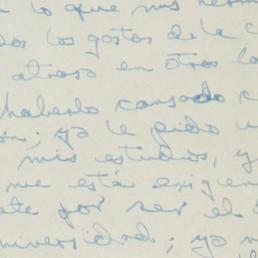 lo que mis herm
los gastos de la c
atraso en otros la
haberlo cansado c
ón; ya le pido u
mis estudios, y
me está exigien
ate por ser el
niversidad; ya n